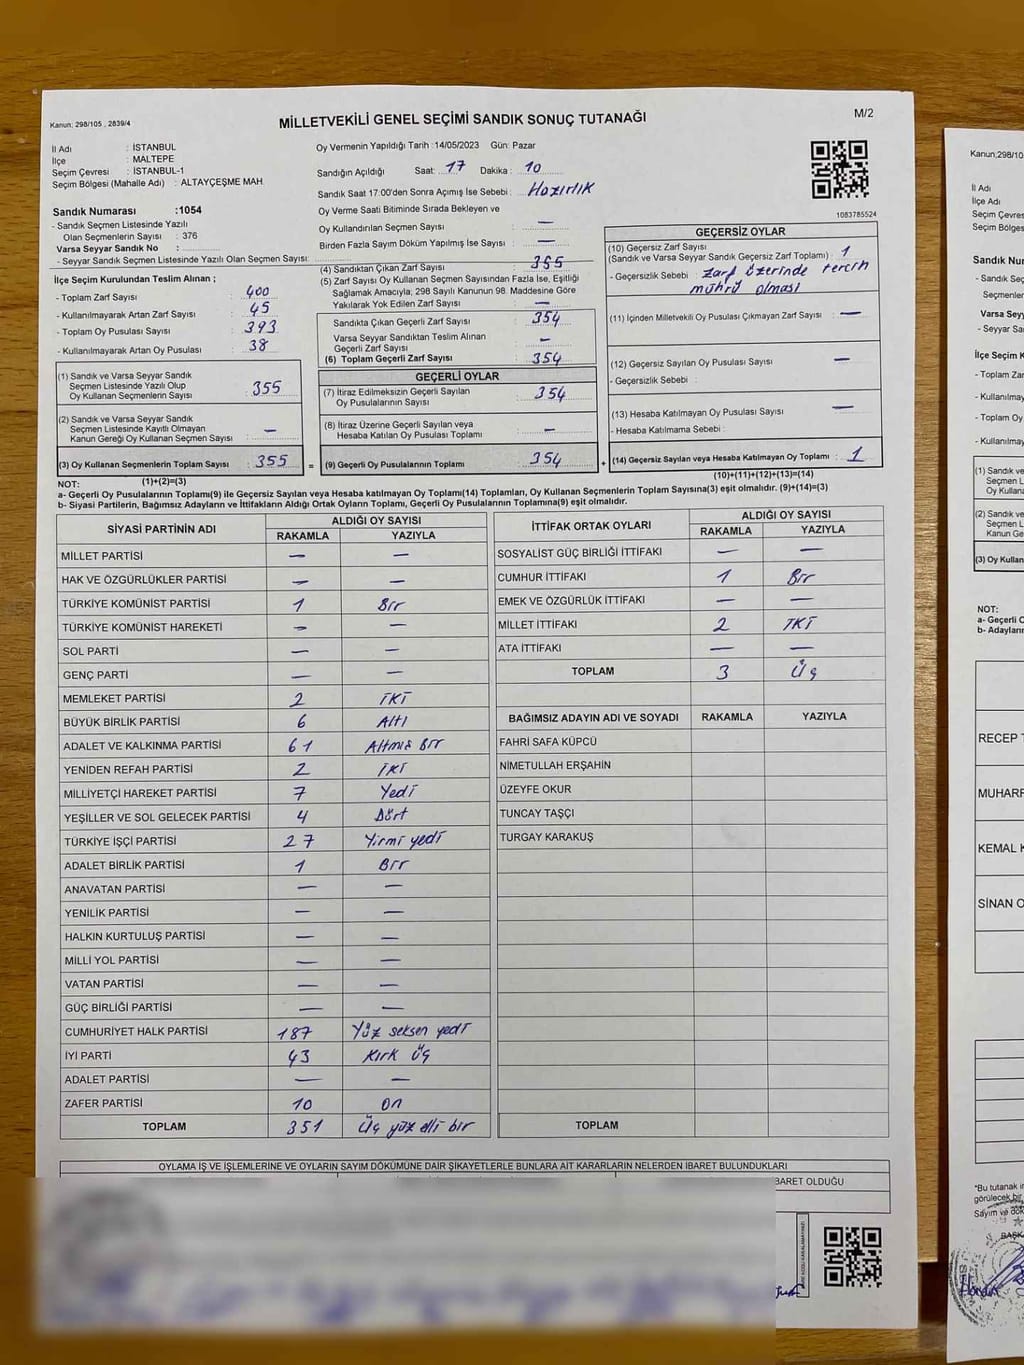 Kanun: 298/105 , 2839/4
MİLLETVEKİLİ GENEL SEÇİMİ SANDIK SONUÇ TUTANAĞI
M/2
İl Adı : İSTANBUL
İlçe : MALTEPE
Seçim Çevresi : İSTANBUL-1
Seçim Bölgesi (Mahalle Adı) : ALTAYÇEŞME MAH
Sandık Numarası :1054
- Sandık Seçmen Listesinde Yazılı
Olan Seçmenlerin Sayısı : 376
Varsa Seyyar Sandık No :
- Seyyar Sandık Seçmen Listesinde Yazılı Olan Seçmen Sayısı:
Oy Vermenin Yapıldığı Tarih :14/05/2023 Gün: Pazar
Sandığın Açıldığı Saat: 17 Dakika: 10
Sandık Saat 17:00'den Sonra Açımış İse Sebebi: Hazırlık
Oy Verme Saati Bitiminde Sırada Bekleyen ve
Oy Kullandırılan Seçmen Sayısı : —
Birden Fazla Sayım Döküm Yapılmış İse Sayısı : —
1083785524
İlçe Seçim Kurulundan Teslim Alınan ;
- Toplam Zarf Sayısı : 400
- Kullanılmayarak Artan Zarf Sayısı : 45
- Toplam Oy Pusulası Sayısı : 393
- Kullanılmayarak Artan Oy Pusulası : 38
(1) Sandık ve Varsa Seyyar Sandık
Seçmen Listesinde Yazılı Olup
Oy Kullanan Seçmenlerin Sayısı : 355
(2) Sandık ve Varsa Seyyar Sandık
Seçmen Listesinde Kayıtlı Olmayan
Kanun Gereği Oy Kullanan Seçmen Sayısı : —
(3) Oy Kullanan Seçmenlerin Toplam Sayısı : 355
(1)+(2)=(3)
(4) Sandıktan Çıkan Zarf Sayısı : 355
(5) Zarf Sayısı Oy Kullanan Seçmen Sayısından Fazla İse, Eşitliği
Sağlamak Amacıyla; 298 Sayılı Kanunun 98. Maddesine Göre
Yakılarak Yok Edilen Zarf Sayısı : —
Sandıkta Çıkan Geçerli Zarf Sayısı : 354
Varsa Seyyar Sandıktan Teslim Alınan
Geçerli Zarf Sayısı : —
(6) Toplam Geçerli Zarf Sayısı : 354
GEÇERLİ OYLAR
(7) İtiraz Edilmeksizin Geçerli Sayılan
Oy Pusulalarının Sayısı : 354
(8) İtiraz Üzerine Geçerli Sayılan veya
Hesaba Katılan Oy Pusulası Toplamı : —
= (9) Geçerli Oy Pusulalarının Toplamı : 354
GEÇERSİZ OYLAR
(10) Geçersiz Zarf Sayısı
(Sandık ve Varsa Seyyar Sandık Geçersiz Zarf Toplamı) : 1
- Geçersizlik Sebebi : Zarf üzerinde tercih
mührü olması
(11) İçinden Milletvekili Oy Pusulası Çıkmayan Zarf Sayısı : —
(12) Geçersiz Sayılan Oy Pusulası Sayısı : —
- Geçersizlik Sebebi :
(13) Hesaba Katılmayan Oy Pusulası Sayısı : —
- Hesaba Katılmama Sebebi :
+ (14) Geçersiz Sayılan veya Hesaba Katılmayan Oy Toplamı : 1
(10)+(11)+(12)+(13)=(14)
NOT:
a- Geçerli Oy Pusulalarının Toplamı(9) ile Geçersiz Sayılan veya Hesaba katılmayan Oy Toplamı(14) Toplamları, Oy Kullanan Seçmenlerin Toplam Sayısına(3) eşit olmalıdır. (9)+(14)=(3)
b- Siyasi Partilerin, Bağımsız Adayların ve İttifakların Aldığı Ortak Oyların Toplamı, Geçerli Oy Pusulalarının Toplamına(9) eşit olmalıdır.
SİYASİ PARTİNİN ADI ALDIĞI OY SAYISI
RAKAMLA YAZIYLA
MİLLET PARTİSİ — —
HAK VE ÖZGÜRLÜKLER PARTİSİ — —
TÜRKİYE KOMÜNİST PARTİSİ 1 Bir
TÜRKİYE KOMÜNİST HAREKETİ — —
SOL PARTİ — —
GENÇ PARTİ — —
MEMLEKET PARTİSİ 2 İKİ
BÜYÜK BİRLİK PARTİSİ 6 Altı
ADALET VE KALKINMA PARTİSİ 61 Altmış Bir
YENİDEN REFAH PARTİSİ 2 İKİ
MİLLİYETÇİ HAREKET PARTİSİ 7 Yedi
YEŞİLLER VE SOL GELECEK PARTİSİ 4 Dört
TÜRKİYE İŞÇİ PARTİSİ 27 Yirmi yedi
ADALET BİRLİK PARTİSİ 1 Bir
ANAVATAN PARTİSİ — —
YENİLİK PARTİSİ — —
HALKIN KURTULUŞ PARTİSİ — —
MİLLİ YOL PARTİSİ — —
VATAN PARTİSİ — —
GÜÇ BİRLİĞİ PARTİSİ — —
CUMHURİYET HALK PARTİSİ 187 Yüz seksen yedi
İYİ PARTİ 43 Kırk Üç
ADALET PARTİSİ — —
ZAFER PARTİSİ 10 On
TOPLAM 351 Üç yüz elli bir
İTTİFAK ORTAK OYLARI ALDIĞI OY SAYISI
RAKAMLA YAZIYLA
SOSYALİST GÜÇ BİRLİĞİ İTTİFAKI — —
CUMHUR İTTİFAKI 1 Bir
EMEK VE ÖZGÜRLÜK İTTİFAKI — —
MİLLET İTTİFAKI 2 İKİ
ATA İTTİFAKI — —
TOPLAM 3 Üç
BAĞIMSIZ ADAYIN ADI VE SOYADI RAKAMLA YAZIYLA
FAHRİ SAFA KÜPCÜ
NİMETULLAH ERŞAHİN
ÜZEYFE OKUR
TUNCAY TAŞÇI
TURGAY KARAKUŞ
TOPLAM
OYLAMA İŞ VE İŞLEMLERİNE VE OYLARIN SAYIM DÖKÜMÜNE DAİR ŞİKAYETLERLE BUNLARA AİT KARARLARIN NELERDEN İBARET BULUNDUKLARI
BARET OLDUĞU
Kanun,298/10
İl Adı
İlçe Adı
Seçim Çevres
Seçim Bölges
Sandık Nu
- Sandık Seç
Seçmenleri
Varsa Seyy
- Seyyar Sa
İlçe Seçim
- Toplam Za
- Kullanılma
- Toplam O
- Kullanılmay
(1) Sandık ve
Seçmen L
Oy Kullana
(2) Sandık ve
Seçmen L
Kanun Ge
(3) Oy Kullan
NOT:
a- Geçerli O
b- Adayların
RECEP T
MUHARR
KEMAL K
SİNAN O
*Bu tutanak
görülecek bir
Sayım ve dök
BAŞK